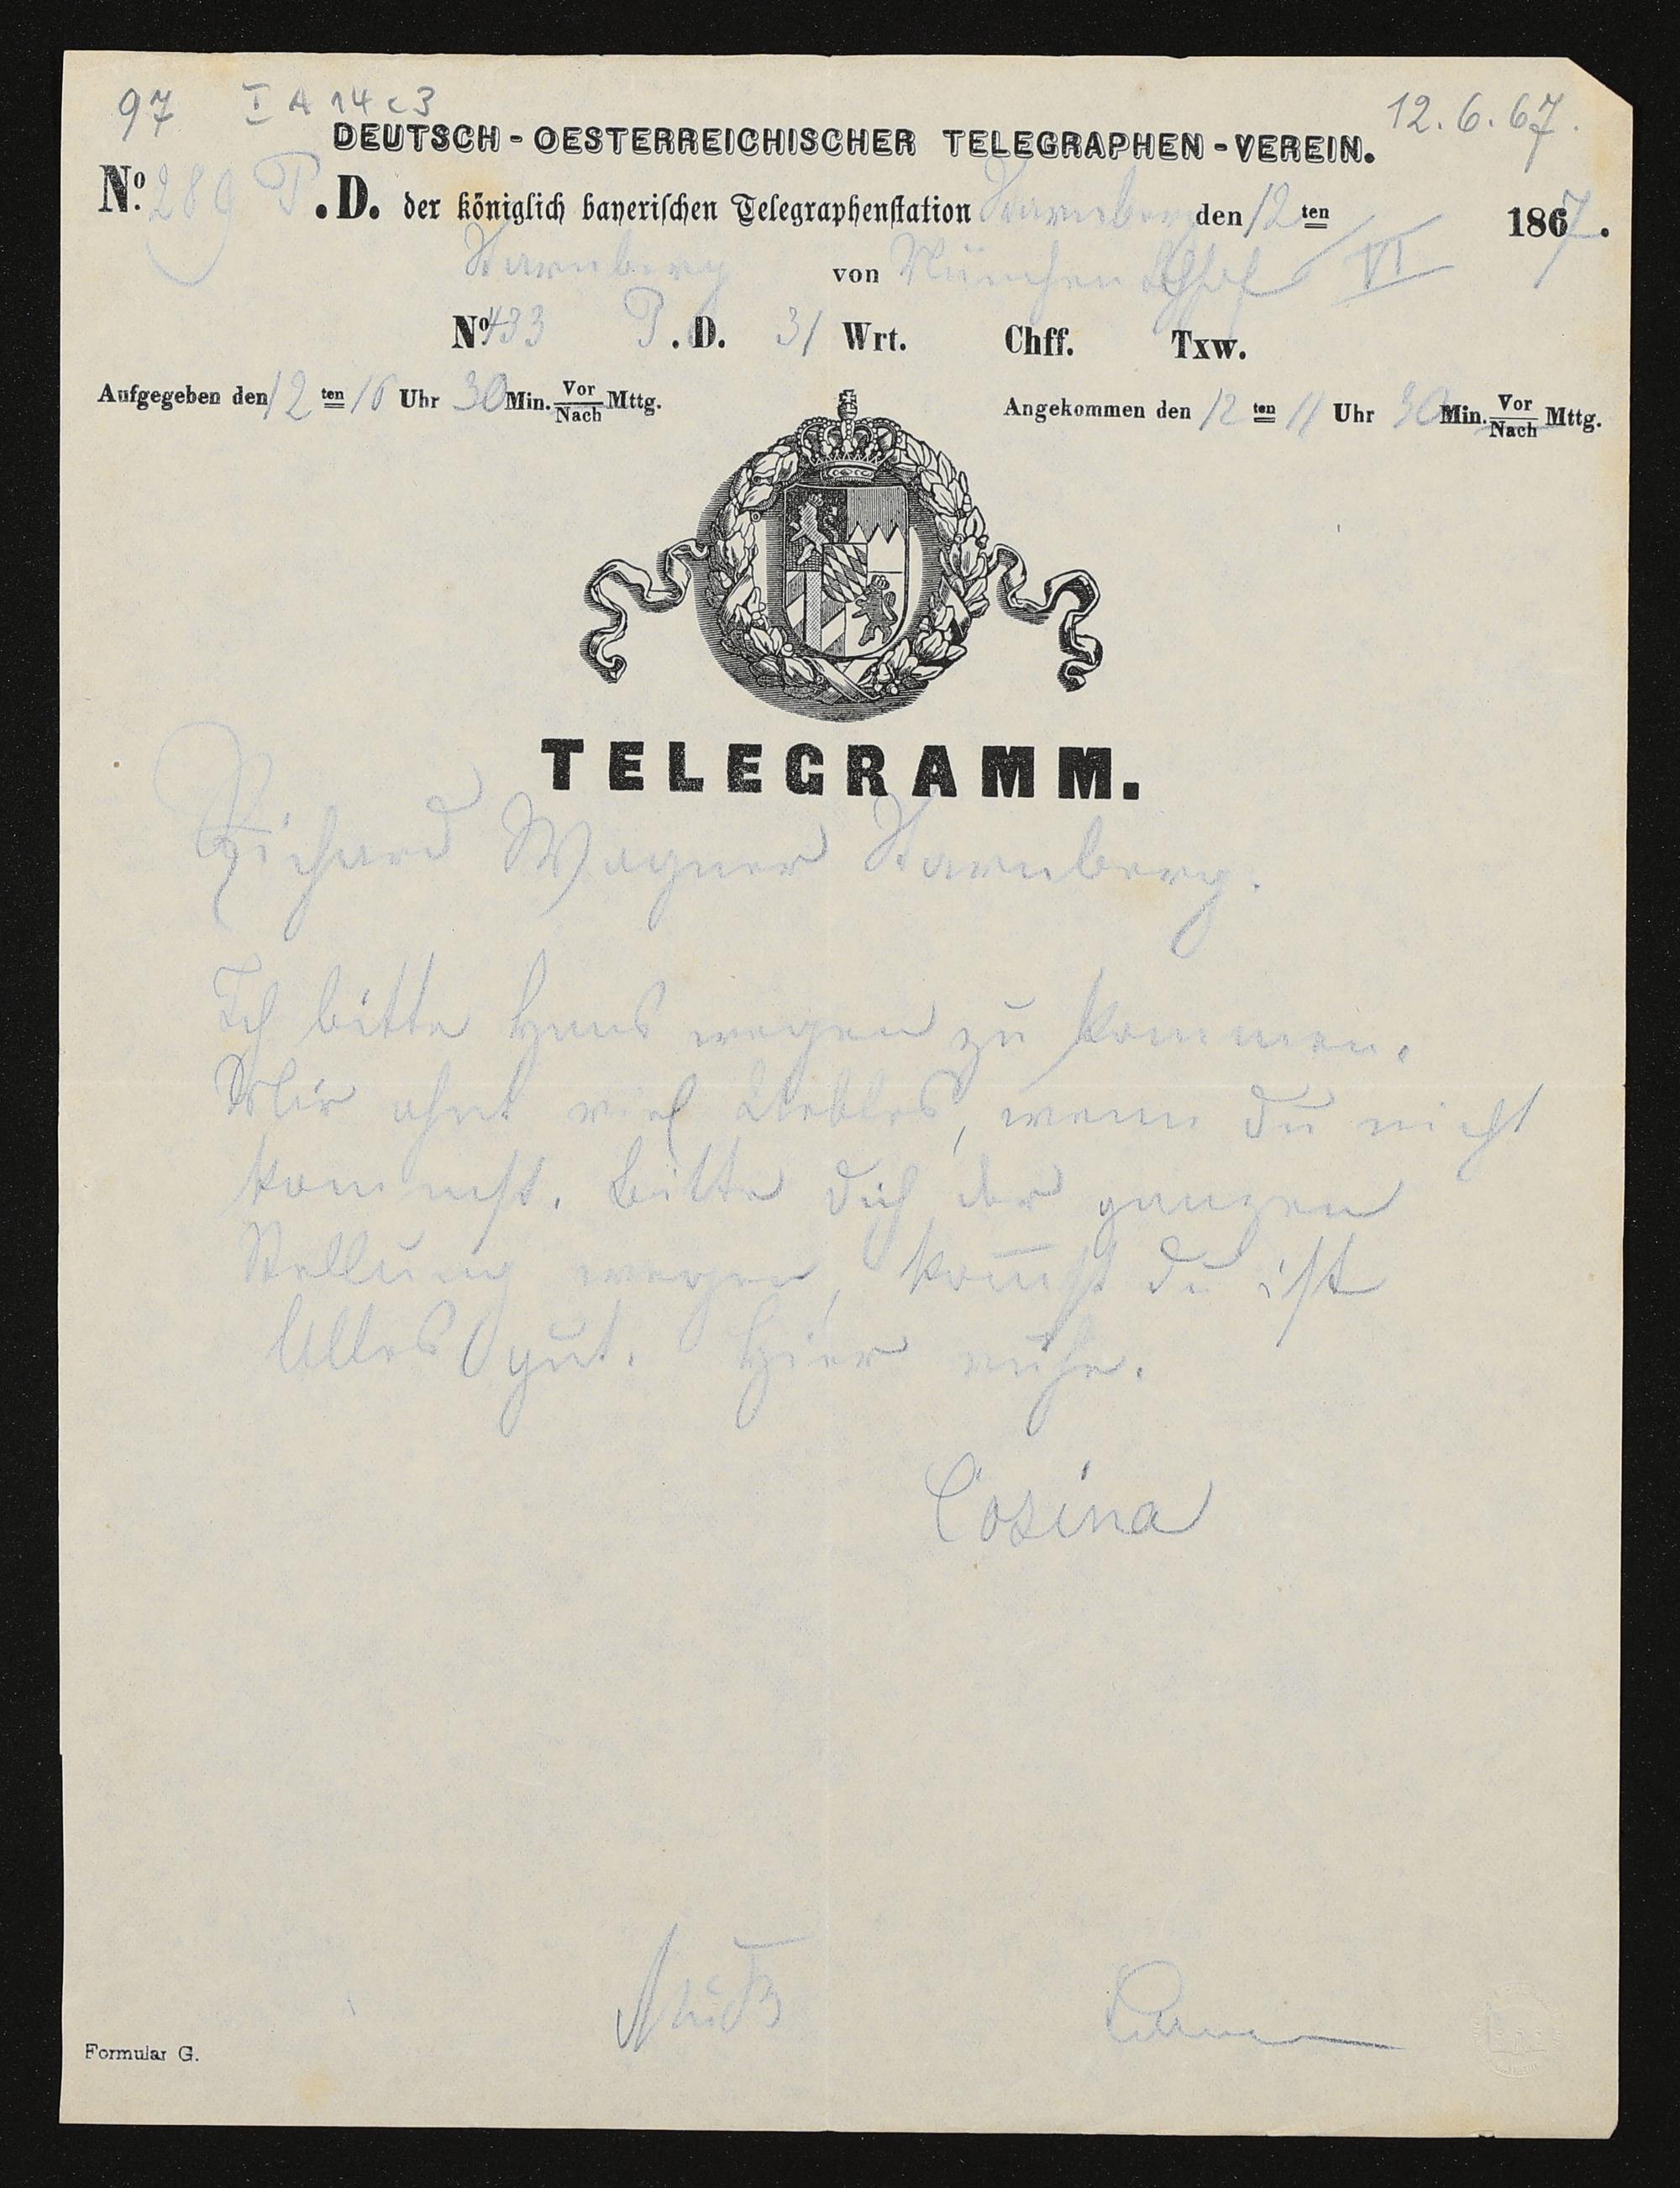 97 I A 14 c 3
12.6.67.
DEUTSCH - OESTERREICHISCHER TELEGRAPHEN - VEREIN.
No. 289 P. D. der königlich bayerischen Telegraphenstation Starnberg den 12 ten 1867.
Starnberg von München VI
No 433 P. D. 31 Wrt. Chff. Txw.
Aufgegeben den 12 ten 10 Uhr 30 Min. Vor/Nach Mttg.
Angekommen den 12 ten 11 Uhr 30 Min. Vor/Nach Mttg.
TELEGRAMM.
Richard Wagner Starnberg.
Ich bitte Hans wegen zu kommen.
Mir ahnt viel Uebles, wenn du nicht
kommst. Bitte dich der ganzen
Stellung wegen, kom̅st du ist
Alles gut. Hier ruhe.
Cosina
Formular G.